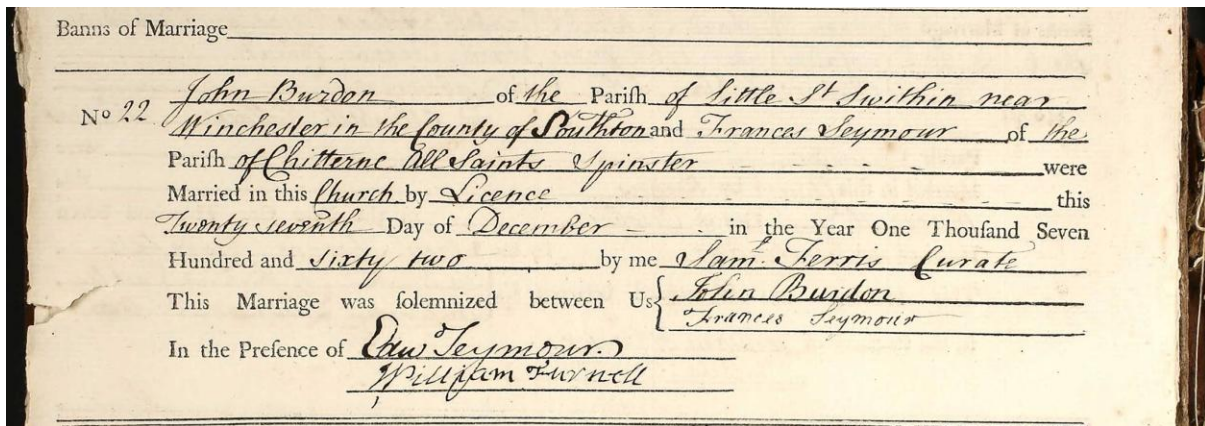 Banns of Marriage
John Burdon of the Pariſh of Little St Swithin near
No 22 Winchester in the County of Southton and Frances Seymour of the
Pariſh of Chitterne All Saints Spinster were
Married in this Church by Licence this
Twenty seventh Day of December in the Year One Thouſand Seven
Hundred and sixty two by me Saml. Ferris Curate
This Marriage was ſolemnized between Us { John Burdon
Frances Seymour
In the Preſence of Edw Seymour.
William Furnell